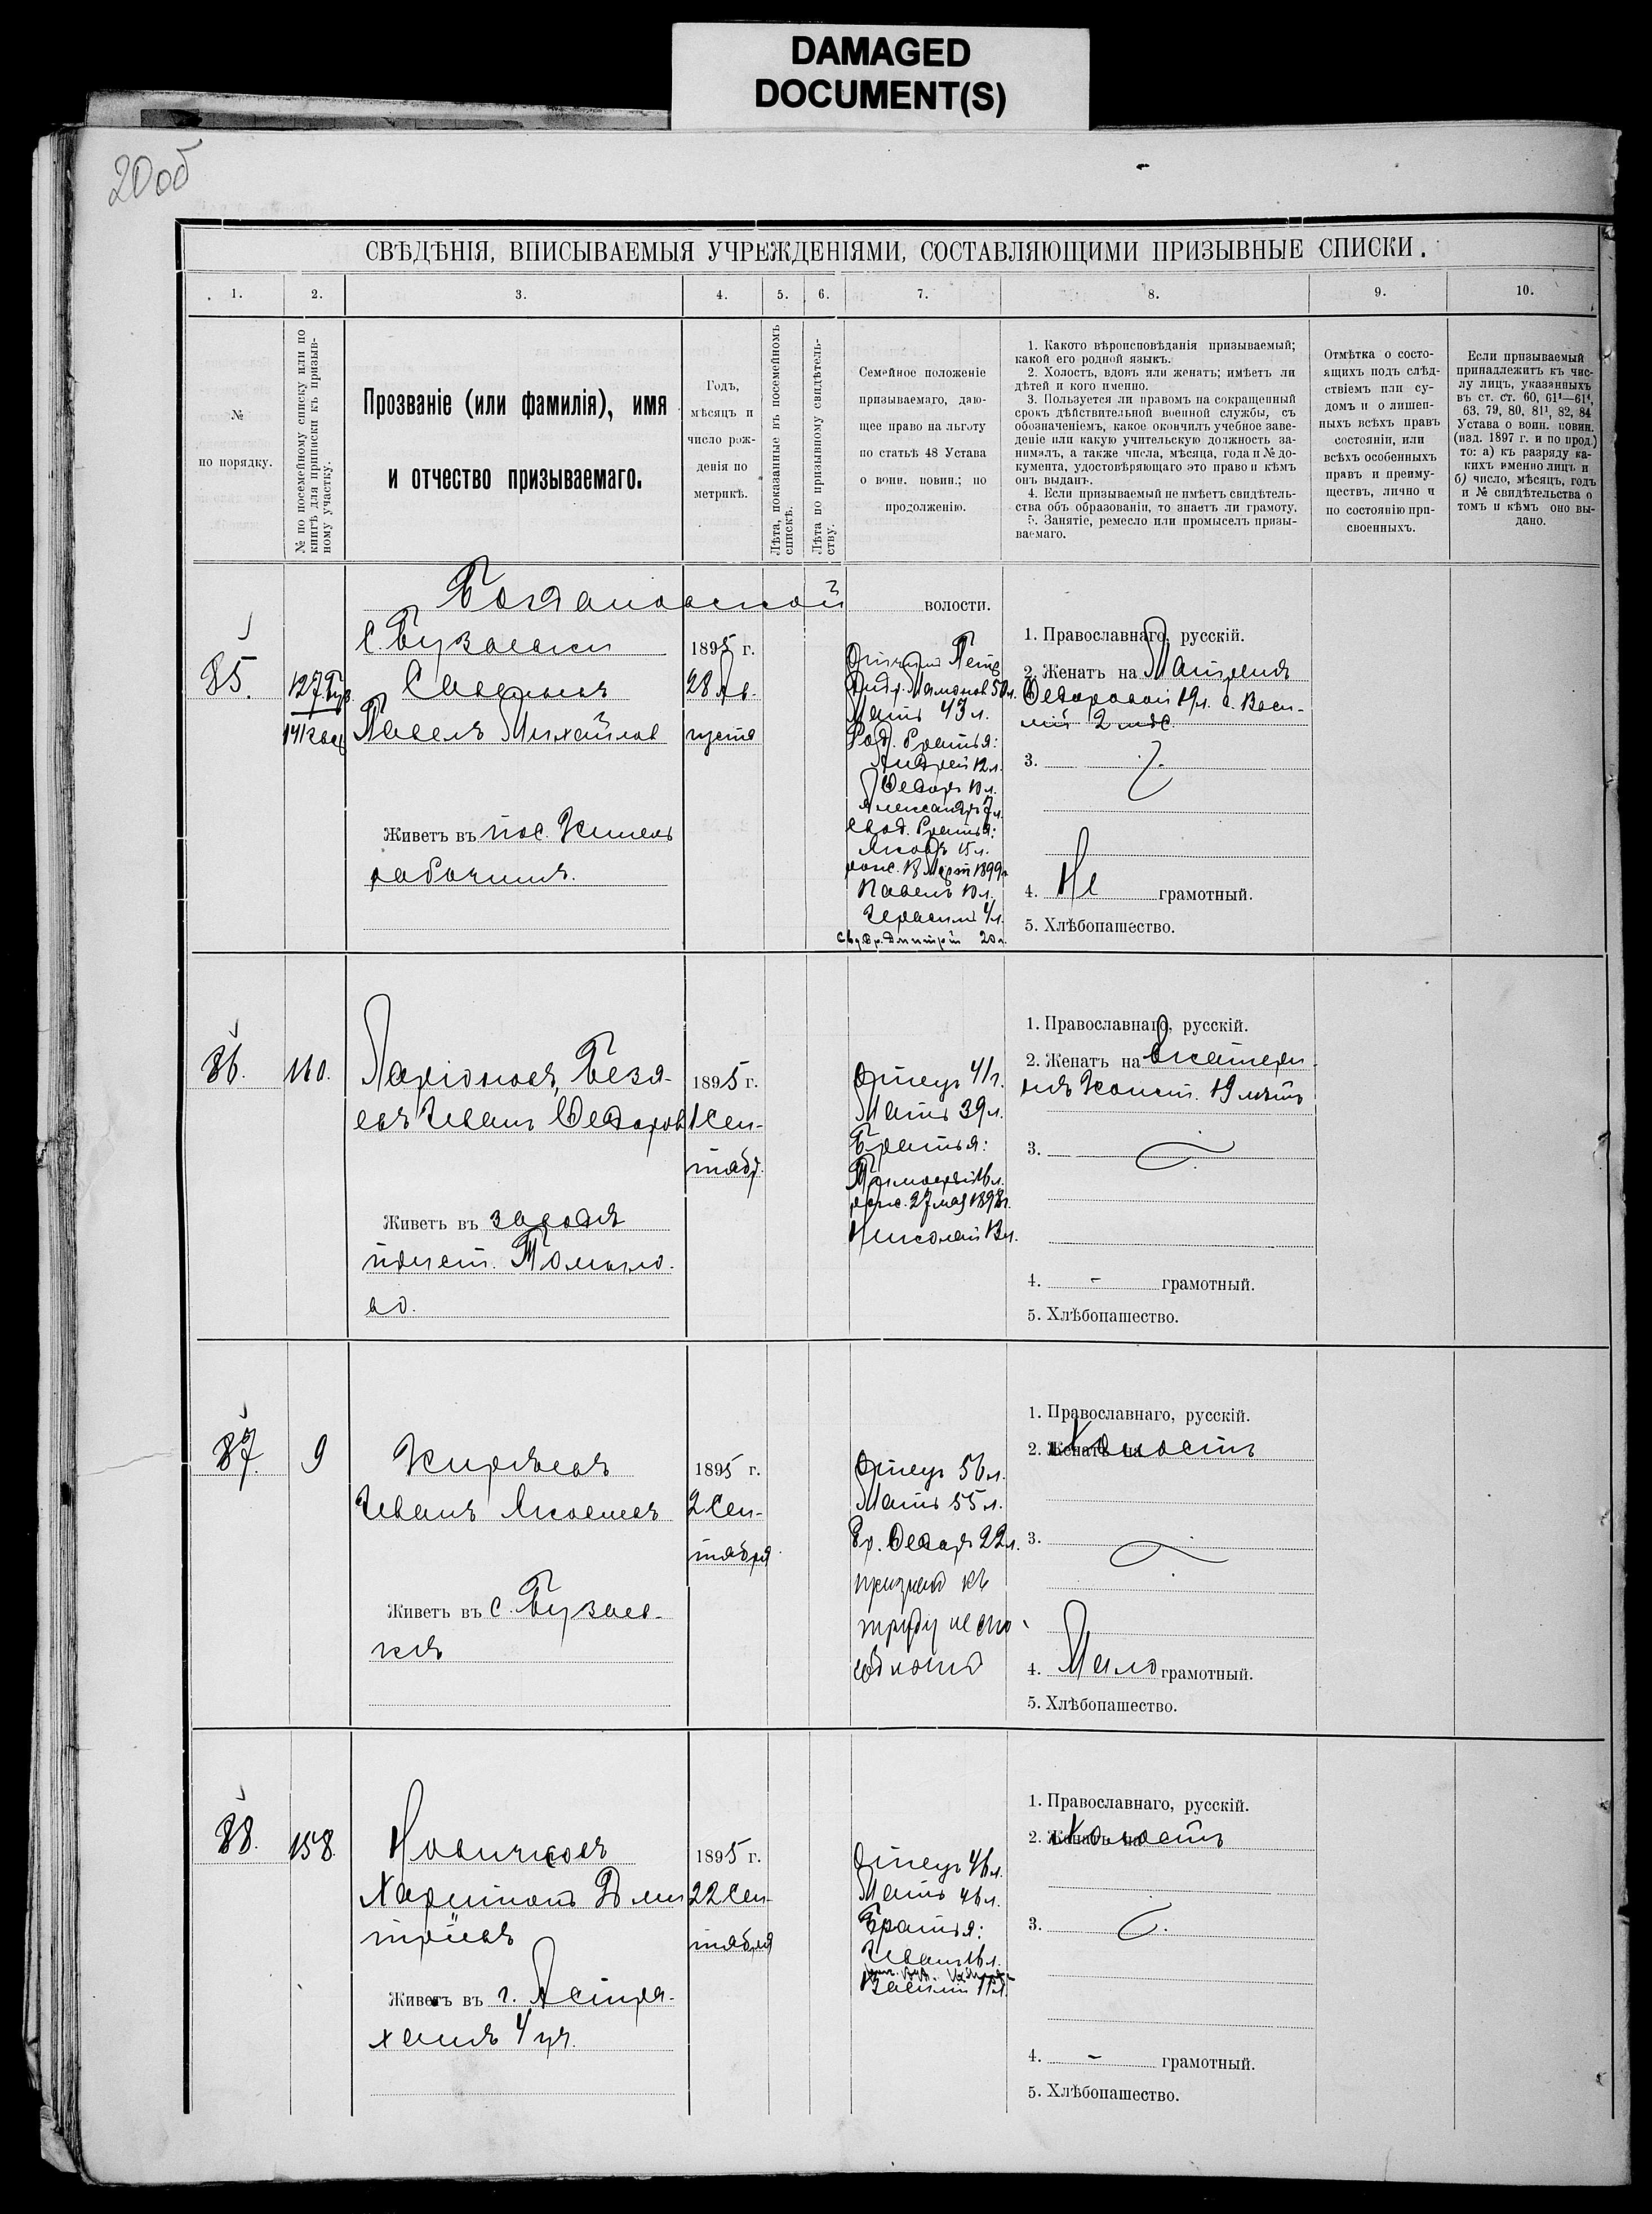 DAMAGED
DOCUMENT(S)
20об
СВѢДѢНІЯ, ВПИСЫВАЕМЫЯ УЧРЕЖДЕНІЯМИ, СОСТАВЛЯЮЩИМИ ПРИЗЫВНЫЕ СПИСКИ.
1.
2.
3.
4.
5.
6.
7.
8.
9.
10.
№
по порядку.
№ по посемейному списку или по
книгѣ для приписки къ призыв-
ному участку.
Прозваніе (или фамилія), имя
и отчество призываемаго.
Годъ,
мѣсяцъ и
число рож-
денія по
метрикѣ.
Лѣта, показанные въ посемейномъ
спискѣ.
Лѣта по призывному свидѣтель-
ству.
Семейное положеніе
призываемаго, даю-
щее право на льготу
по статьѣ 48 Устава
о воин. повин.; по
продолженію.
1. Какого вѣроисповѣданія призываемый;
какой его родной языкъ.
2. Холостъ, вдовъ или женатъ; имѣетъ ли
дѣтей и кого именно.
3. Пользуется ли правомъ на сокращенный
срокъ дѣйствительной военной службы, съ
обозначеніемъ, какое окончилъ учебное заве-
деніе или какую учительскую должность за-
нималъ, а также числа, мѣсяца, года и № до-
кумента, удостовѣряющаго это право и кѣмъ
онъ выданъ.
4. Если призываемый не имѣетъ свидѣтель-
ства объ образованіи, то знаетъ ли грамоту.
5. Занятіе, ремесло или промыселъ призы-
ваемаго.
Отмѣтка о состо-
ящихъ подъ слѣд-
ствіемъ или су-
домъ и о лишен-
ныхъ всѣхъ правъ
состоянія, или
всѣхъ особенныхъ
правъ и преиму-
ществъ, лично и
по состоянію при-
своенныхъ.
Если призываемый
принадлежитъ къ чис-
лу лицъ, указанныхъ
въ ст. ст. 60, 61¹—61⁴,
63, 79, 80, 81¹, 82, 84
Устава о воин. повин.
(изд. 1897 г. и по прод.)
то: а) къ разряду ка-
кихъ именно лицъ и
б) число, мѣсяцъ, годъ
и № свидѣтельства о
томъ и кѣмъ оно вы-
дано.
Богдановской волости.
С. Бузаевки
85.
127 Буз
141
Савельевъ
Павелъ Михайлов
Живетъ въ пос. Кинель
рабочимъ.
1895 г.
28 Ав-
густа
Отчимъ Петр
Андр. Мамонов 50 л.
Мать 43 л.
Род. братья:
Андрей 12 л.
Федоръ 10 л.
Александръ 7 л.
Свод. братья:
Яковъ 15 л.
рож. 18 Март 1899 г
Павелъ 10 л.
Герасимъ 4 л.
Св. др. Дмитрій 20 л.
1. Православнаго, русскій.
2. Женатъ на Матренѣ
Федоровой 19 л. с. Васи-
лій 2 мѣс.
3.
4. Не грамотный.
5. Хлѣбопашество.
86.
110.
Ларіоновъ, Безя-
евъ Иванъ Федоров
Живетъ въ городѣ
почт. Томыло-
во.
1895 г.
1 Сен-
тябр.
Отецъ 41 г.
Мать 39 л.
Братья:
Тимофей 16 л.
рож. 27 мая 1898 г.
Николай 13 л.
1. Православнаго, русскій.
2. Женатъ на Екатери-
нѣ Конст. 19 лѣтъ
3.
4. - грамотный.
5. Хлѣбопашество.
87.
9
Кирѣевъ
Иванъ Яковлев
Живетъ въ с. Бузаев-
кѣ
1895 г.
2 Сен-
тября
Отецъ 56 л.
Мать 55 л.
Бр. Федоръ 22 л.
признанъ къ
труду не спо-
собнымъ
1. Православнаго, русскій.
2. Женатъ на Холостъ
3.
4. Мало грамотный.
5. Хлѣбопашество.
88.
158.
Новичковъ
Харитонъ Дми
тріевъ
Живетъ въ г. Астра-
ханѣ 4 уч.
1895 г.
22 Сен-
тября
Отецъ 46 л.
Мать 46 л.
Братья:
Иванъ 16 л.
Василій 11 л.
1. Православнаго, русскій.
2. Женатъ на Холостъ
3.
4. - грамотный.
5. Хлѣбопашество.